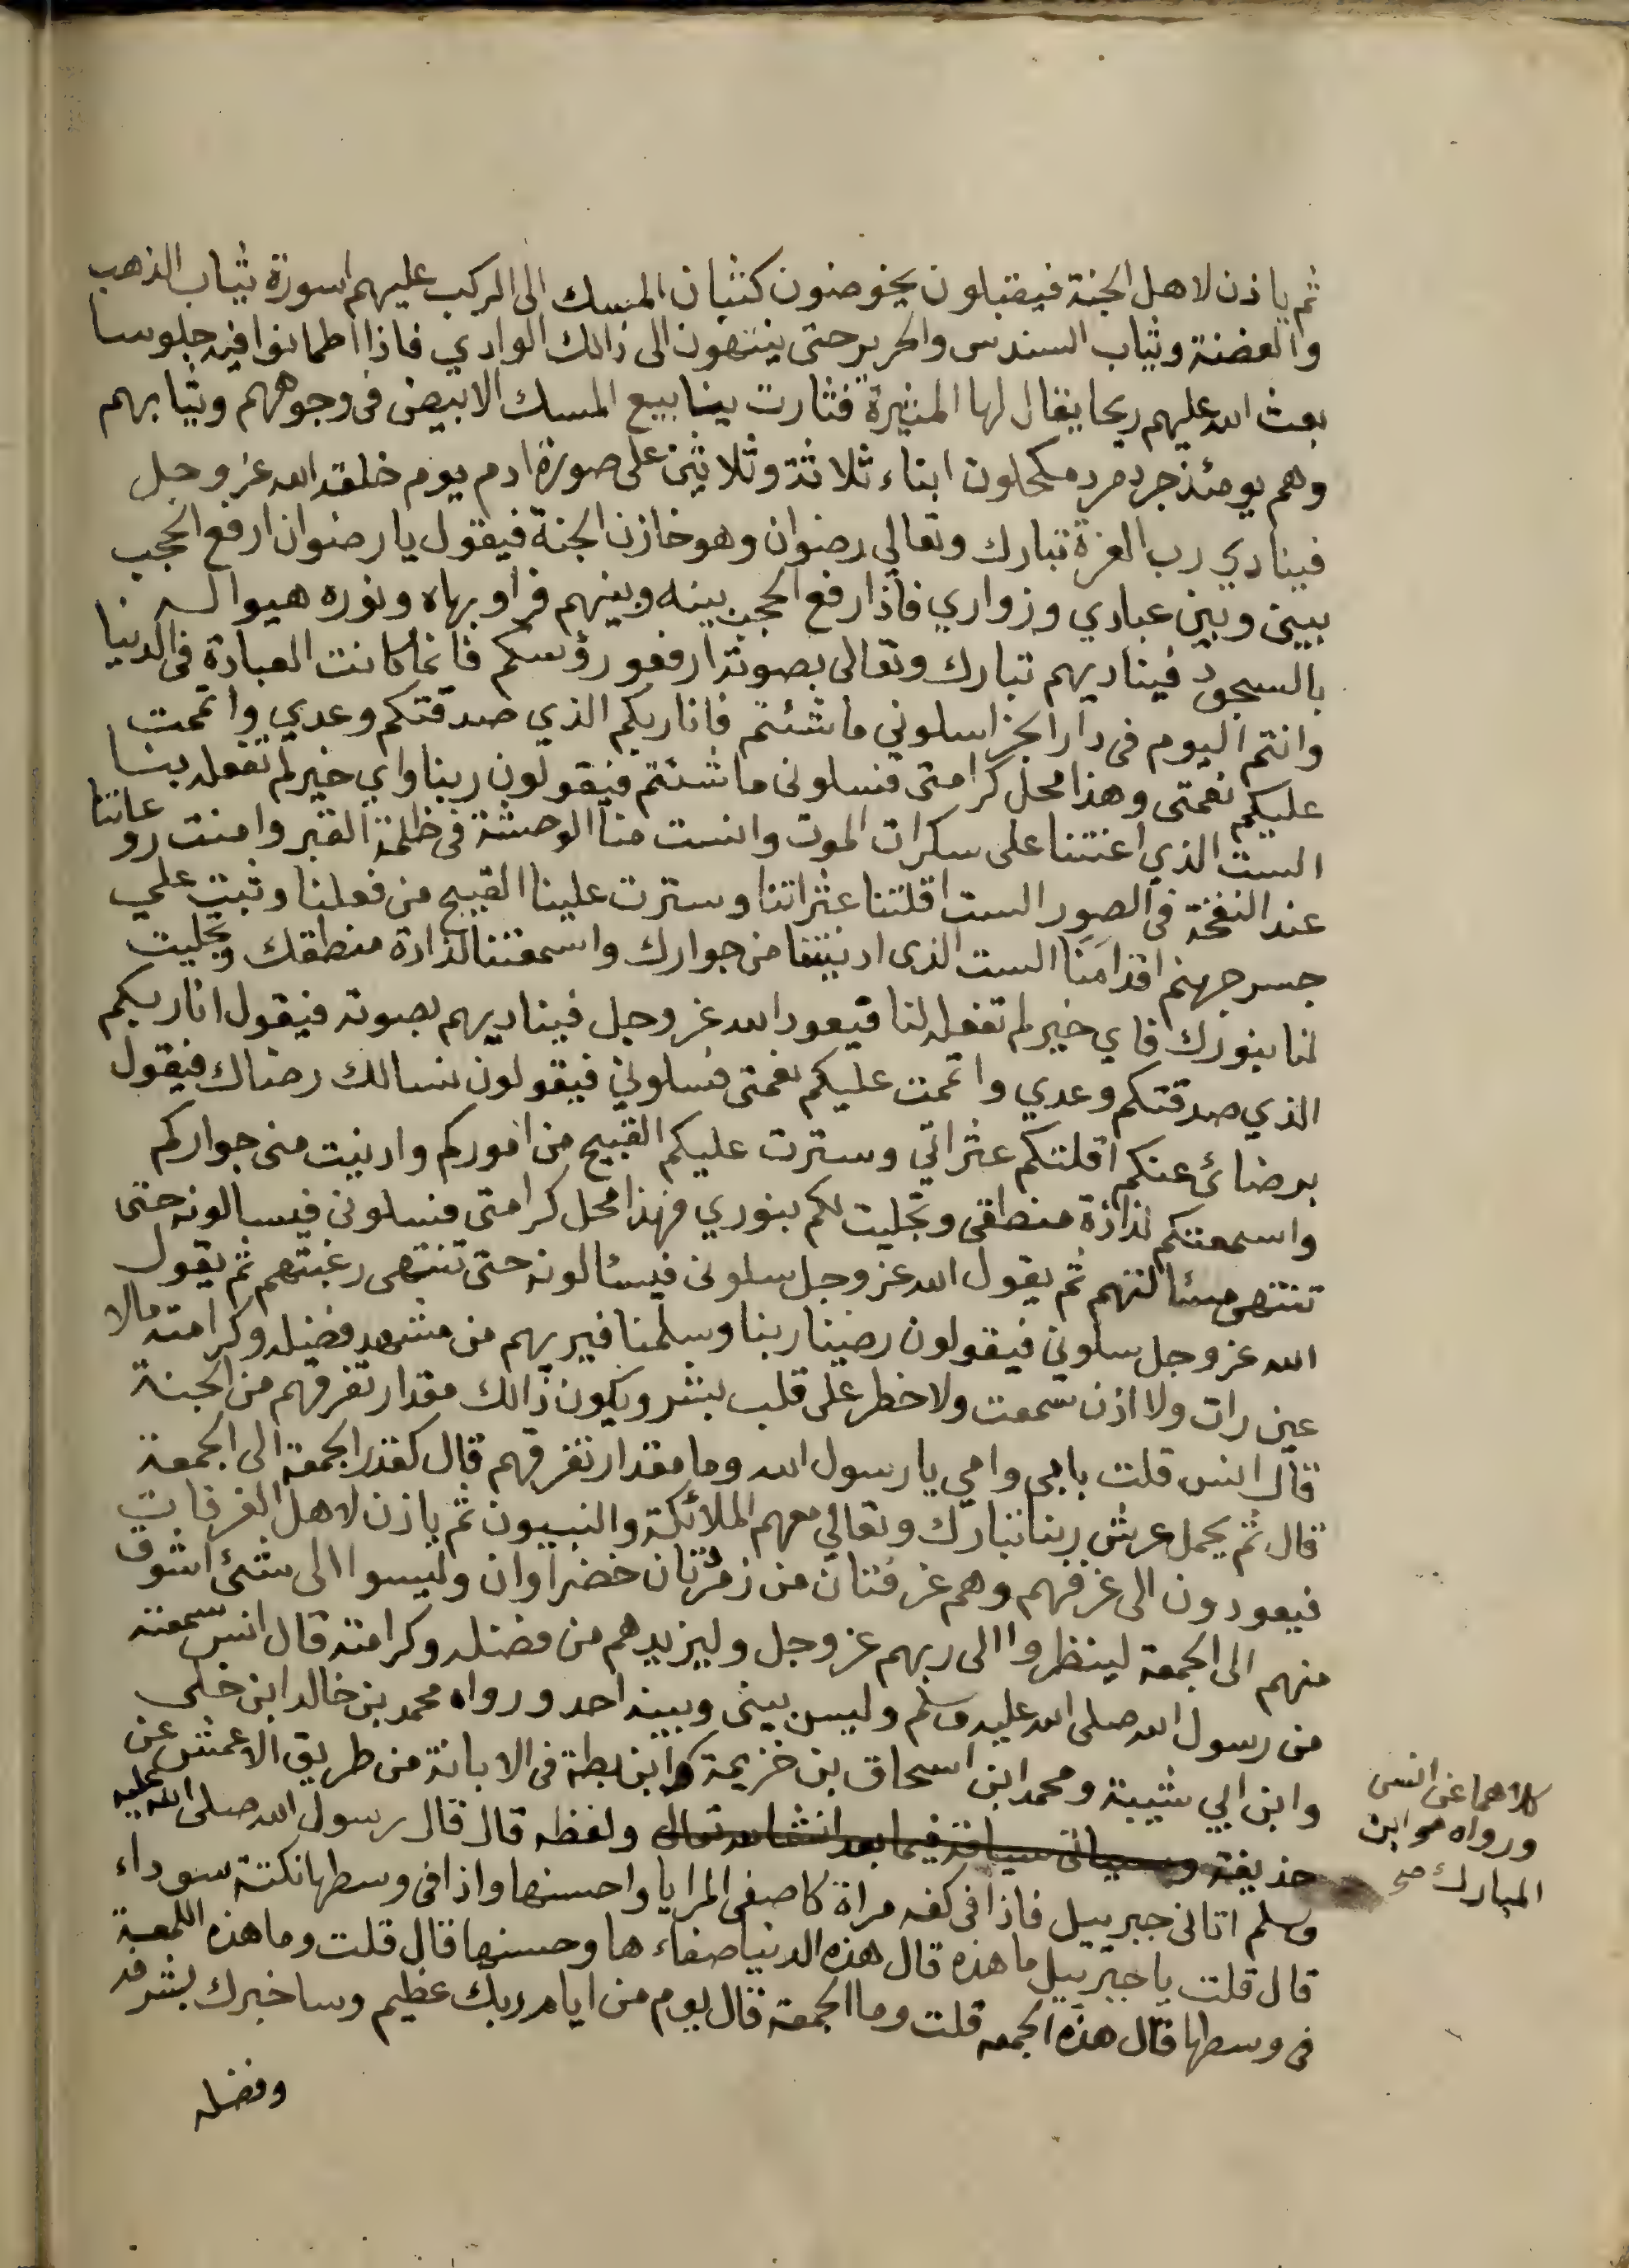 ثم ياذن لاهل الجنة فيقبلون يخوضون كثبان المسك الى الركب عليهم اسورة ثياب الذهب
والفضة وثياب السندس والحرير حتى ينتهون الى ذالك الوادي فاذا اطمانوا فيه جلوسا
بعث الله عليهم ريحا يقال لها المثيرة فثارت ينابيع المسك الابيض فى وجوههم وثيابهم
وهم يومئذ جرد مرد مكحلون ابناء ثلاثة وثلاثين على صورة ادم يوم خلقه الله عز وجل
فينادي رب العزة تبارك وتعالي رضوان وهو خازن الجنة فيقول يا رضوان ارفع الحجب
بيني وبين عبادي وزواري فاذا رفع الحجب بينه وبينهم فراو بهاه ونوره هيوا له
بالسجود فيناديهم تبارك وتعالى بصوته ارفعو رؤسكم فانما كانت العبادة فى الدنيا
وانتم اليوم فى دار الجزا سلوني ما شئتم فانا ربكم الذي صدقتكم وعدي واتممت
عليكم نعمتى وهذا محل كرامتى فسلونى ما شئتم فيقولون ربنا واي خير لم تفعله بنا
الست الذي اعنتنا على سكرات الموت وانست منا الوحشة فى ظلمة القبر وامنت روعاتنا
عند النفخة فى الصور الست اقلتنا عثراتنا وسترت علينا القبيح من فعلنا وثبت على
جسر جهنم اقدامنا الست الذى ادنيتنا من جوارك واسمعتنا لذاذة منطقك وتجليت
لنا بنورك فاي خير لم تفعله لنا فيعود الله عز وجل فيناديهم بصوته فيقول انا ربكم
الذي صدقتكم وعدي واتممت عليكم نعمتى فسلوني فيقولون نسالك رضاك فيقول
برضائى عنكم اقلتكم عثراتي وسترت عليكم القبيح من اموركم وادنيت منى جواركم
واسمعتكم لذاذة منطقى وتجليت لكم بنوري فهذا محل كرامتى فسلونى فيسالونه حتى
تنتهى مسئالتهم ثم يقول الله عز وجل سلونى فيسئالونه حتى تنتهى رغبتهم ثم يقول
الله عز وجل سلوني فيقولون رضينا ربنا وسلمنا فيريهم من مشهد فضله وكرامته مالا
عين رات ولا اذن سمعت ولا خطر على قلب بشر ويكون ذالك مقدار تفرقهم من الجمعة
قال انس قلت بابى وامي يا رسول الله وما مقدار تفرقهم قال كقدر الجمعة الى الجمعة
قال ثم يحمل عرش ربنا تبارك وتعالي معهم الملائكة والنبيون ثم ياذن لاهل الغرفات
فيعودون الى غرفهم وهم غرفتان من زمرتان خضراوان وليسوا الى شئ اشوق
منهم الى الجمعة لينظروا الى ربهم عز وجل وليزيدهم من فضله وكرامته قال انس سمعته
من رسول الله صلى الله عليه وسلم وليس بيني وبينه احد ورواه محمد بن خالد ابن خلى
وابن ابي شيبة ومحمد ابن اسحاق بن خزيمة وابن بطة فى الابانة من طريق الاعمش عن
حذيفة وسياتى سياقه فيما بعد انشا الله تعالى ولفظه قال قال رسول الله صلى الله عليه
وسلم اتانى جبرييل فاذا فى كفه مراة كاصفى المرايا واحسنها واذا فى وسطها نكتة سوداء
قال قلت يا جبرييل ما هذه قال هذه الدنيا صفاء ها وحسنها قال قلت وما هذه اللمعة
فى وسطها قال هذه الجمعه قلت وما الجمعة قال يوم من ايام ربك عظيم وساخبرك بشرفه
وفضله
كلاهما عن انس
ورواه ابن
المبارك صح